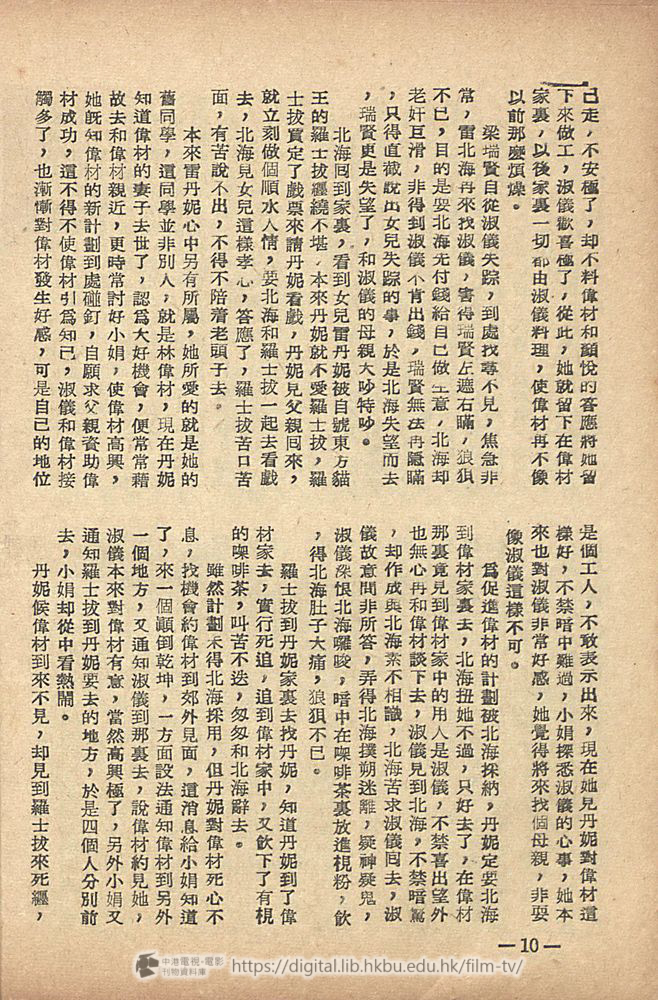 己走，不安極了，却不料偉材和顏悅的答應將她留
下來做工，淑儀歡喜極了，從此，她就留下在偉材
家裏，以後家裏一切都由淑儀料理，使偉材再不像
以前那麼煩燥。
梁瑞賢自從淑儀失踪，到處找尋不見，焦急非
常，雷北海再來找淑儀，害得瑞賢左遮右瞞，狼狽
不已，目的是要北海先付錢給自己做生意，北海却
老奸巨滑，非得到淑儀不肯出錢，瑞賢無法再隱瞞
，只得直截說出女兒失踪的事，於是北海失望而去
，瑞賢更是失望了，和淑儀的母親大吵特吵。
北海囘到家裏，看到女兒雷丹妮被自號東方貓
王的羅士拔纒繞不堪，本來丹妮就不愛羅士拔，羅
士拔買定了戲票來請丹妮看戲，丹妮見父親囘來，
就立刻做個順水人情，要北海和羅士拔一起去看戲
去，北海見女兒這樣孝心，答應了，羅士拔苦口苦
面，有苦說不出，不得不陪着老頭子去。
本來雷丹妮心中另有所屬，她所愛的就是她的
舊同學，這同學並非別人，就是林偉材，現在丹妮
知道偉材的妻子去世了，認爲大好機會，便常常藉
故去和偉材親近，更時常討好小娟，使偉材高興，
她旣知偉材的新計劃到處碰釘，自願求父親資助偉
材成功，這不得不使偉材引爲知己，淑儀和偉材接
觸多了，也漸漸對偉材發生好感，可是自己的地位
是個工人，不敢表示出來，現在她見丹妮對偉材這
樣好，不禁暗中難過，小娟探悉淑儀的心事，她本
來也對淑儀非常好感，她覺得將來找個母親，非要
像淑儀這樣不可。
爲促進偉材的計劃被北海採納，丹妮定要北海
到偉材家裏去，北海扭她不過，只好去了，在偉材
那裏竟見到偉材家中的用人是淑儀，不禁喜出望外
也無心再和偉材談下去，淑儀見到北海，不禁暗驚
，却作成與北海素不相識，北海苦求淑儀囘去，淑
儀故意問非所答，弄得北海撲朔迷離，疑神疑鬼，
淑儀深恨北海囉唆，暗中在㗎啡茶裏放進梘粉，飲
，得北海肚子大痛，狼狽不已。
羅士拔到丹妮家裏去找丹妮，知道丹妮到了偉
材家去，實行死追，追到偉材家中，又飲下了有梘
的㗎啡茶，叫苦不迭，匆匆和北海辭去。
雖然計劃未得北海採用，但丹妮對偉材死心不
息，找機會約偉材到郊外見面，這消息給小娟知道
了，來一個顛倒乾坤，一方面設法通知偉材到另外
一個地方，又通知淑儀到那裏去，說偉材約見她，
淑儀本來對偉材有意，當然高興極了，另外小娟又
通知羅士拔到丹妮要去的地方，於是四個人分別前
去，小娟却從中看熱鬧。
丹妮候偉材到來不見，却見到羅士拔來死纒，
—10—
中港電視·電影
刊物資料庫
https://digital.lib.hkbu.edu.hk/film-tv/